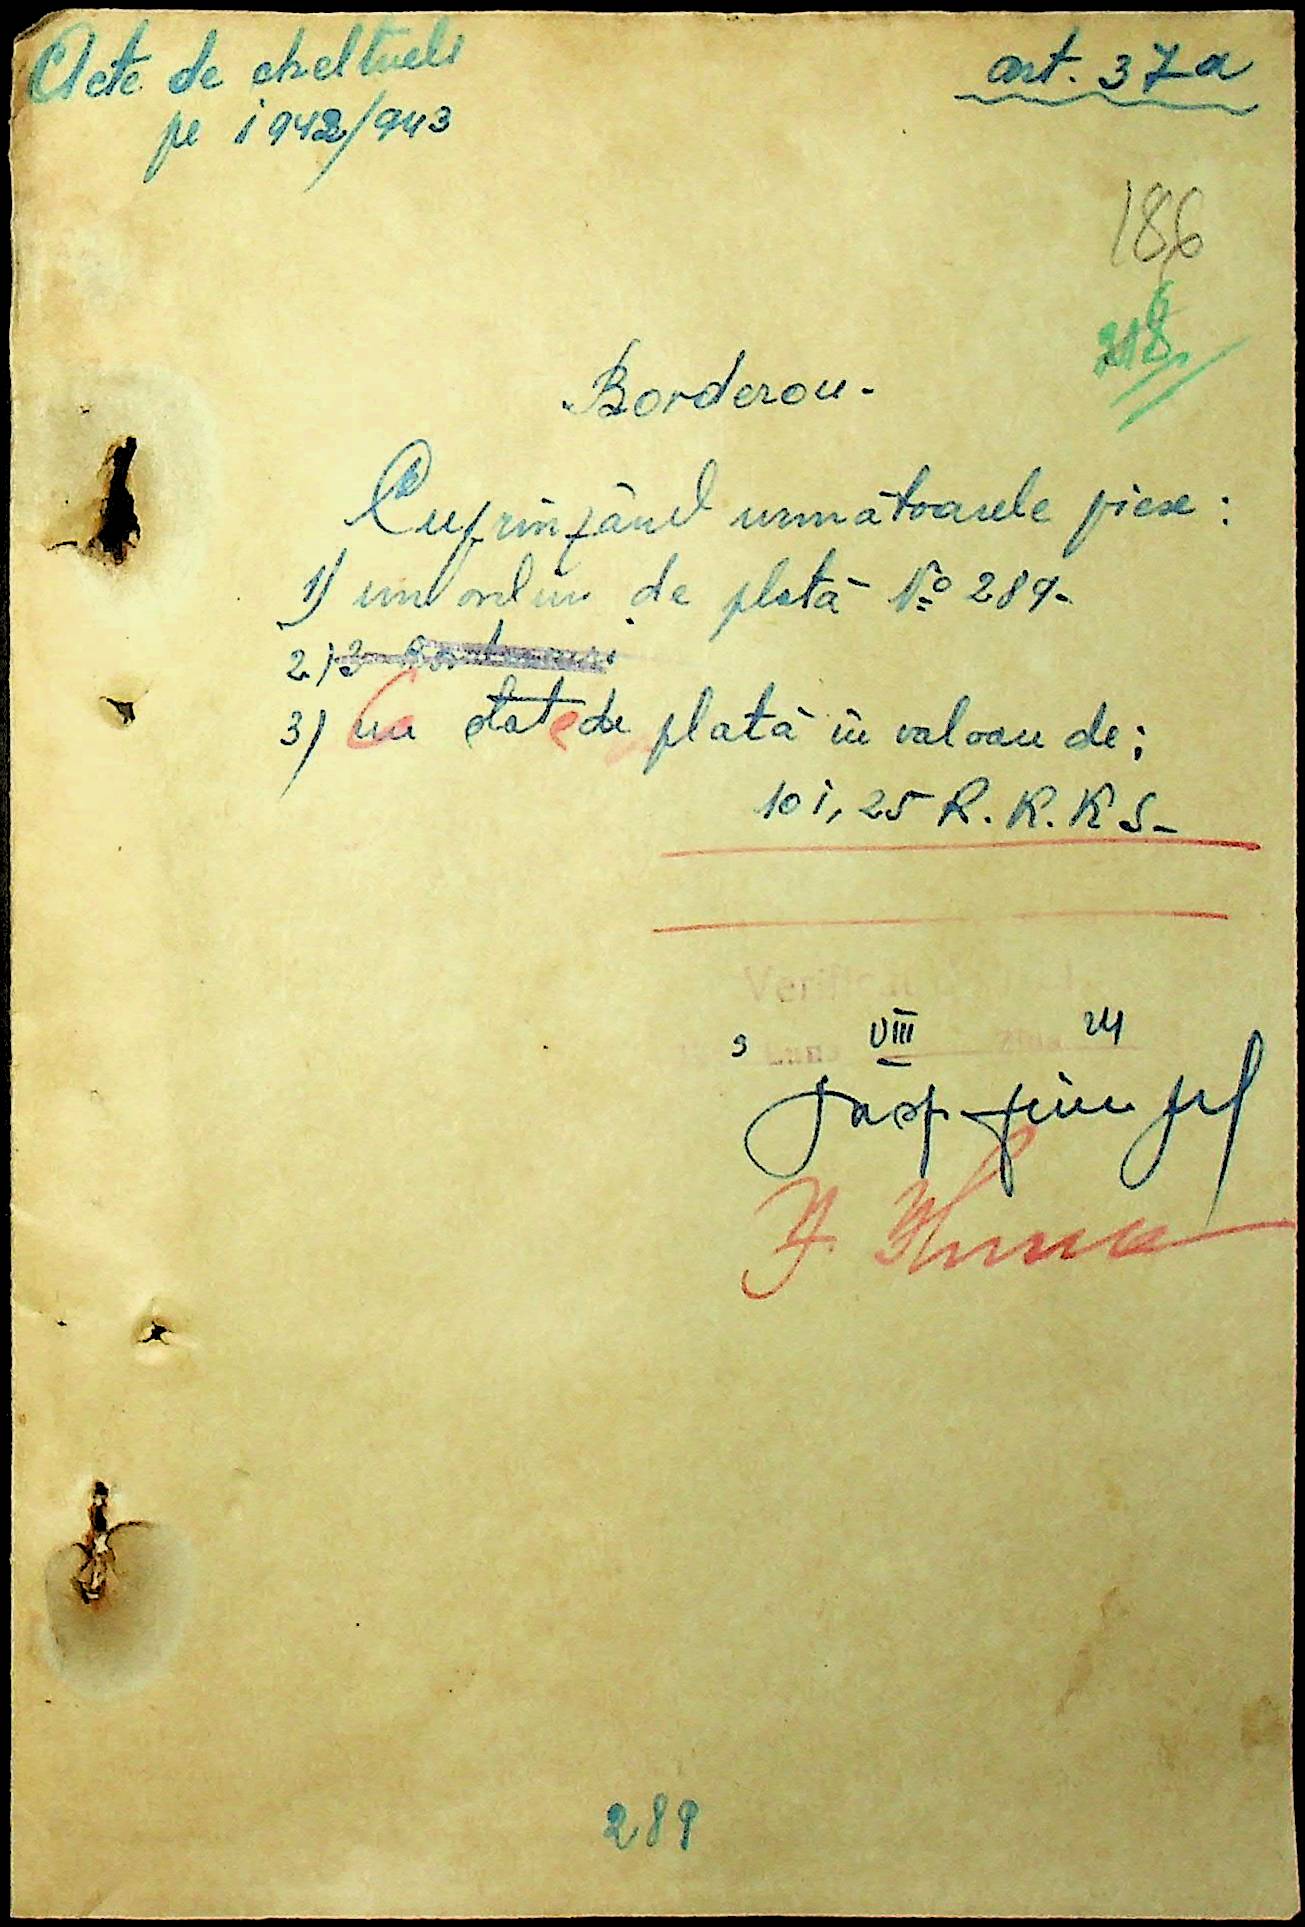 Acte de cheltueli
pe 1942/943
art. 37 a
186
218
Borderou-
Cuprinzând urmatoarele piese:
1) un ordin de plată No 289-
2) 3
3) un state de plată în valoare de:
101,25 R.K.K S-
Verificat
3 Luna VIII Ziua 24
289